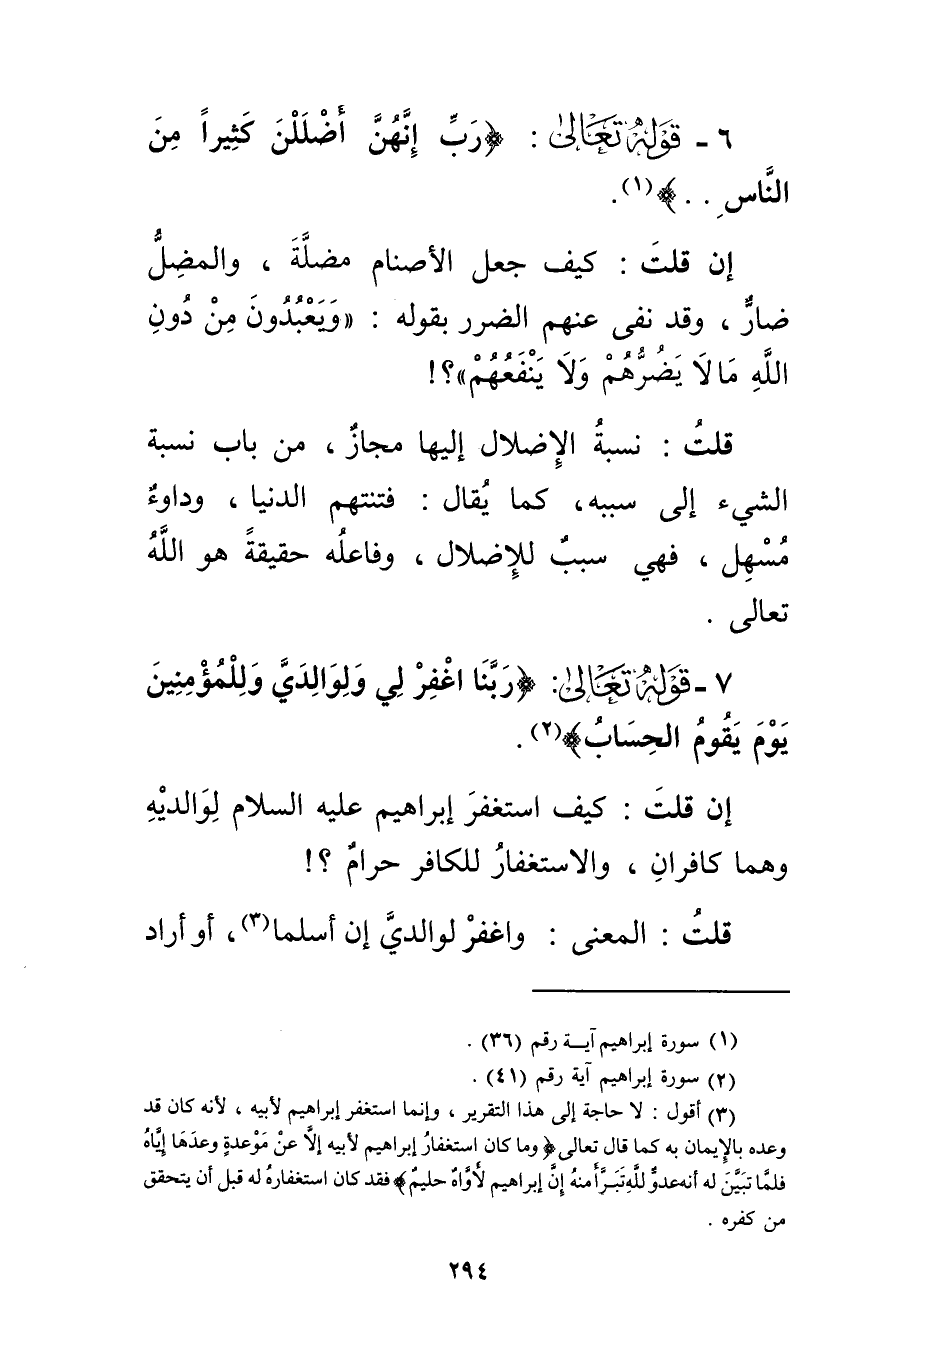 ٦ - قَوْلُهُ تَعَالَىٰ : ﴿رَبِّ إِنَّهُنَّ أَضْلَلْنَ كَثِيراً مِنَ
النَّاسِ . . ﴾(١).
إن قلتَ : كيف جعل الأصنام مضلَّةَ ، والمضِلُّ
ضارٌّ ، وقد نفى عنهم الضرر بقوله : «وَيَعْبُدُونَ مِنْ دُونِ
اللَّهِ مَا لَا يَضُرُّهُمْ وَلَا يَنْفَعُهُمْ»؟!
قلتُ : نسبةُ الإِضلال إليها مجازٌ ، من باب نسبة
الشيء إلى سببه، كما يُقال : فتنتهم الدنيا ، وداوءٌ
مُسْهِل ، فهي سببٌ للإِضلال ، وفاعلُه حقيقةً هو اللَّهُ
تعالى .
٧ - قَوْلُهُ تَعَالَىٰ: ﴿رَبَّنَا اغْفِرْ لِي وَلِوَالِدَيَّ وَلِلْمُؤْمِنِينَ
يَوْمَ يَقُومُ الحِسَابُ﴾(٢) .
إن قلتَ : كيف استغفرَ إبراهيم عليه السلام لِوَالديْهِ
وهما كافرانِ ، والاستغفارُ للكافر حرامٌ ؟!
قلتُ : المعنى : واغفرْ لوالديَّ إن أسلما(٣)، أو أراد
(١) سورة إبراهيم آيــة رقم (٣٦) .
(٢) سورة إبراهيم آية رقم (٤١) .
(٣) أقول : لا حاجة إلى هذا التقرير ، وإنما استغفر إبراهيم لأبيه ، لأنه كان قد
وعده بالإِيمان به كما قال تعالى ﴿وما كان استغفارُ إبراهيم لأبيه إلَّا عنْ مَوْعدةٍ وعدَهَا إيَّاهُ
فلمَّا تبَيَّنَ له أنه عدوٌّ للَّهِ تَبَرَّأ منهُ إنَّ إبراهيم لأَوَّاهٌ حليمٌ﴾ فقد كان استغفارهُ له قبل أن يتحقق
من كفره .
٢٩٤